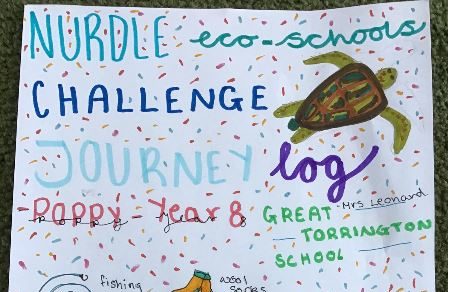 NURDLE eco-schools
CHALLENGE
JOURNEY log
- Poppy - Year 8
Mrs Leonard
GREAT
TORRINGTON
SCHOOL
fishing
wool
socks